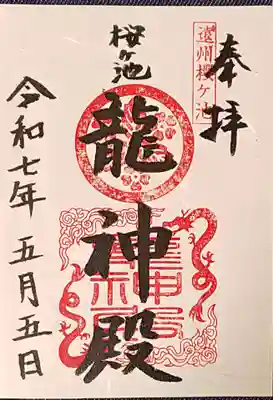 奉拝
遠州桜ケ池
桜ヶ池
龍神殿
令和七年 五月五日